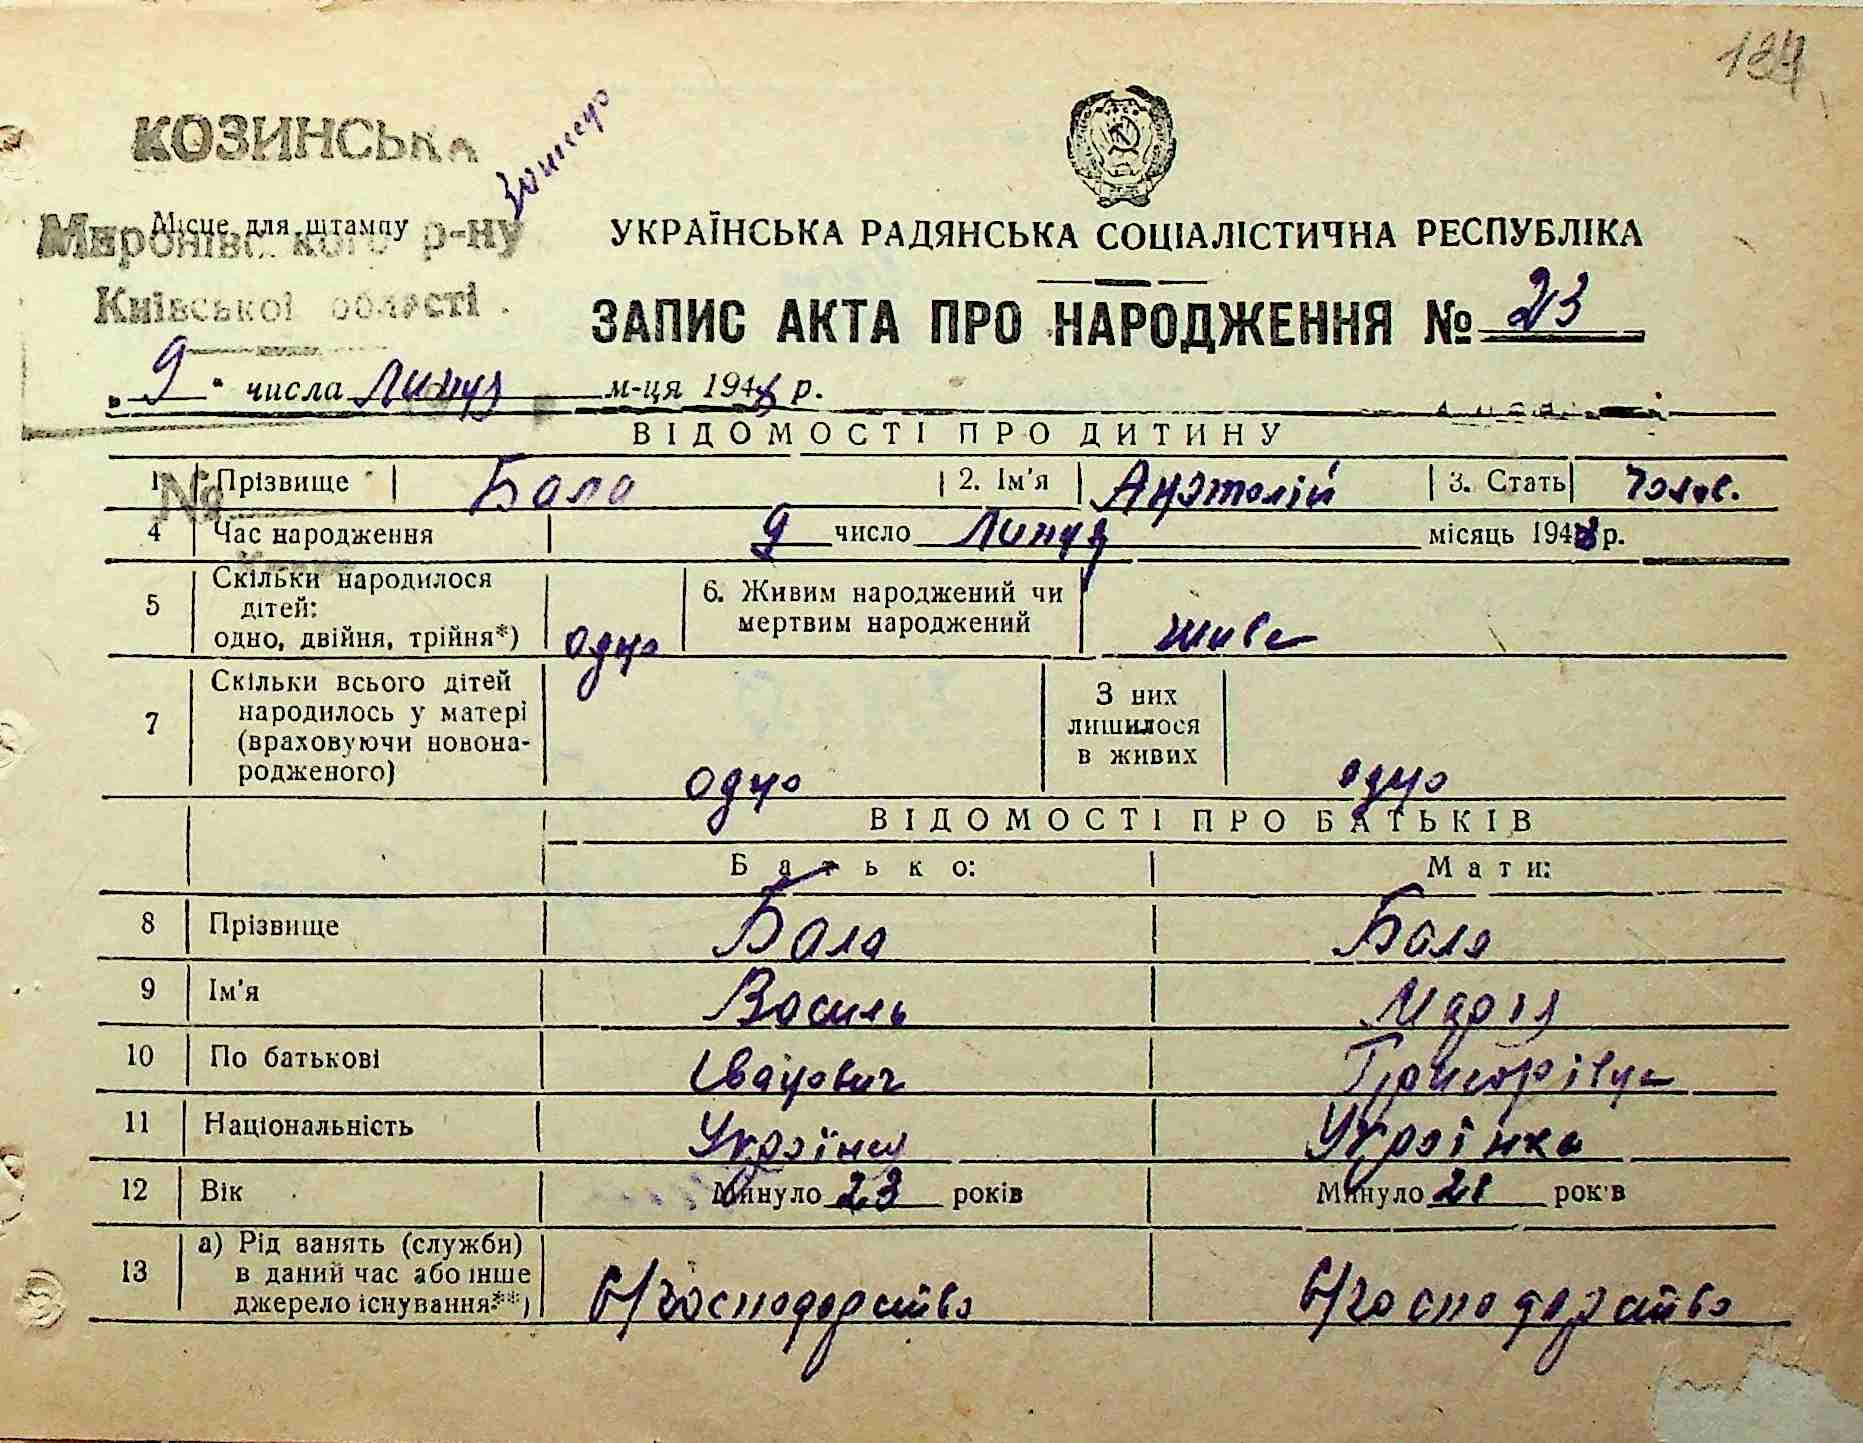 КОЗИНСЬКА
Місце для штампу
Миронівського р-ну
Київської області
УКРАЇНСЬКА РАДЯНСЬКА СОЦІАЛІСТИЧНА РЕСПУБЛІКА
ЗАПИС АКТА ПРО НАРОДЖЕННЯ № 23
„ 9 “ числа Липня м-ця 1948 р.
ВІДОМОСТІ ПРО ДИТИНУ
1 Прізвище Бала 2. Ім'я Анатолій 3. Стать Чолов.
№
4 Час народження 9 число Липня місяць 1948 р.
5 Скільки народилося дітей: одно, двійня, трійня*) одно 6. Живим народжений чи мертвим народжений живе
7 Скільки всього дітей народилось у матері (враховуючи новонародженого) одно З них лишилося в живих одно
ВІДОМОСТІ ПРО БАТЬКІВ
Батько: Мати:
8 Прізвище Бала Бала
9 Ім'я Василь Марія
10 По батькові Іванович Григорівна
11 Національність Українец Українка
12 Вік Минуло 23 років Минуло 21 років
13 а) Рід занять (служби) в даний час або інше джерело існування**) с/господарство с/господарство